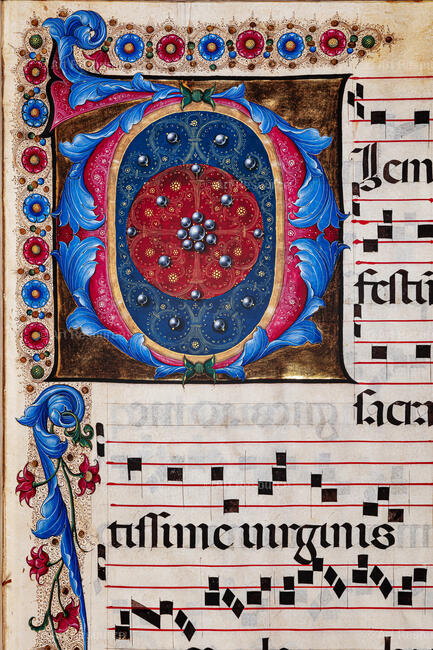 DIem
feſtu
ſacra
tiſſime uirginis